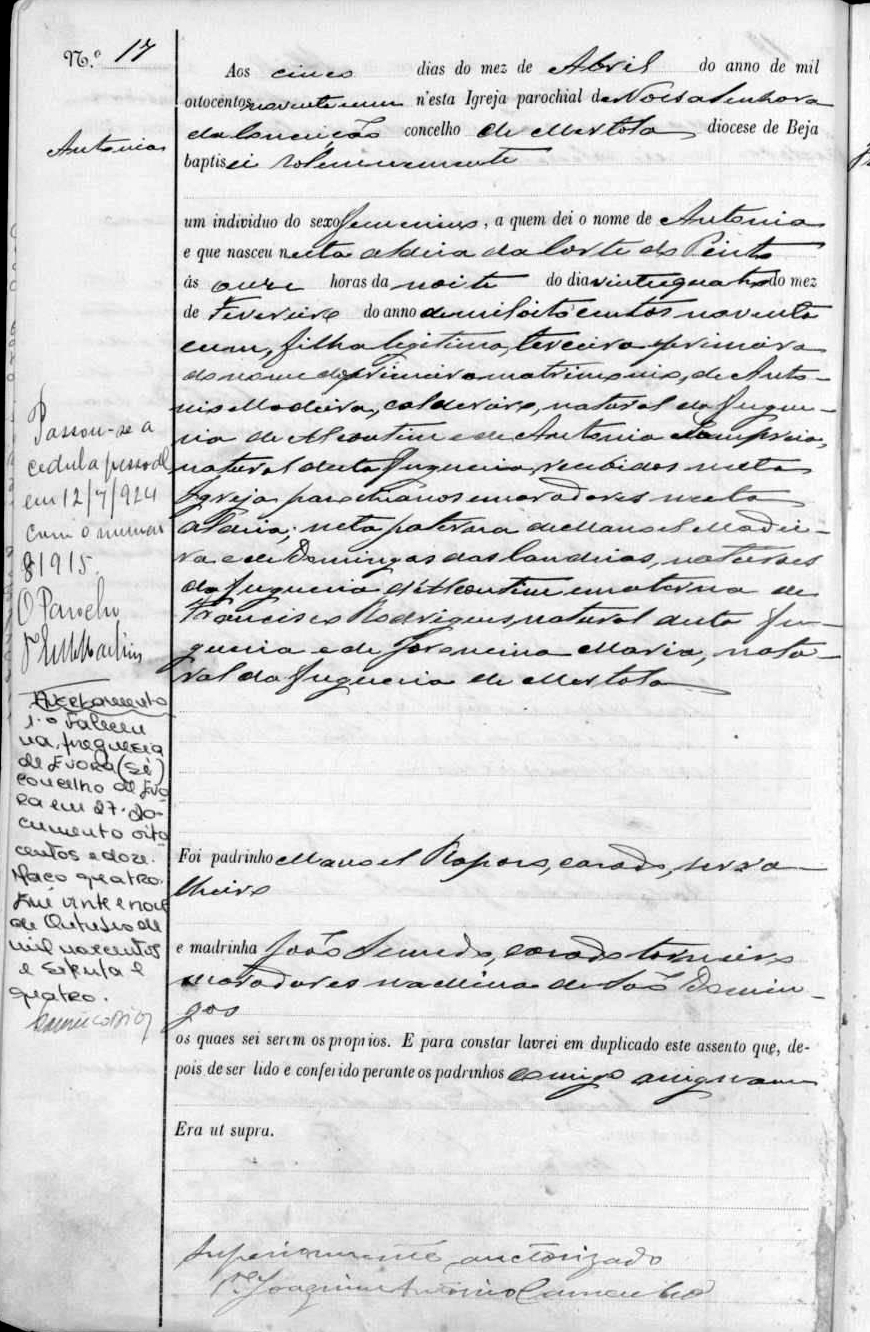 N.º 17
Antonia
Aos cinco dias do mez de Abril do anno de mil
oitocentos noventa e um n'esta Igreja parochial de Nossa Senhora
da Conceição concelho de Mertola diocese de Beja
baptisei solemnemente
um individuo do sexo femenino, a quem dei o nome de Antonia
e que nasceu nesta aldeia da Corte do Pinto
ás onze horas da noite do dia vinte e quatro do mez
de Fevereiro do anno de mil oito centos noventa
e um, filha legitima, terceira e primeira
do nome do primeiro matrimonio, de Anto-
nio Madeira, caldereiro, natural da fregue-
zia de Alcoutim e de Antonia Lampreia,
natural desta freguezia, recebidos nesta
Igreja parochianos e moradores nesta
aldeia; neta paterna de Manoel Madei-
ra e de Domingas das Candeias, naturaes
da freguezia d'Alcoutim e materna de
Francisco Rodrigues natural desta fre-
guezia e de Joaquina Maria, natu-
ral da freguezia de Mertola
Foi padrinho Manoel Raposo, casado, serra-
lheiro
e madrinha João Semedo, casado torneiro
moradores na Mina de São Domin-
gos
os quaes sei serem os proprios. E para constar lavrei em duplicado este assento que, de-
pois de ser lido e conferido perante os padrinhos comigo assignaram
Era ut supra.
Superiormente auctorizado
P.e Joaquim Antonio
Passou-se a
cedula pessoal
em 12/7/924
com o numero
81915.
O Parocho
P.e Martins
Averbamento
1.º Faleceu
na freguesia
de Evora (Sé)
concelho de Evo
ra em 27. Do-
cumento oito
centos e doze.
Maço quatro.
Em vinte e nove
de Outubro de
mil novecentos
e setenta e
quatro.